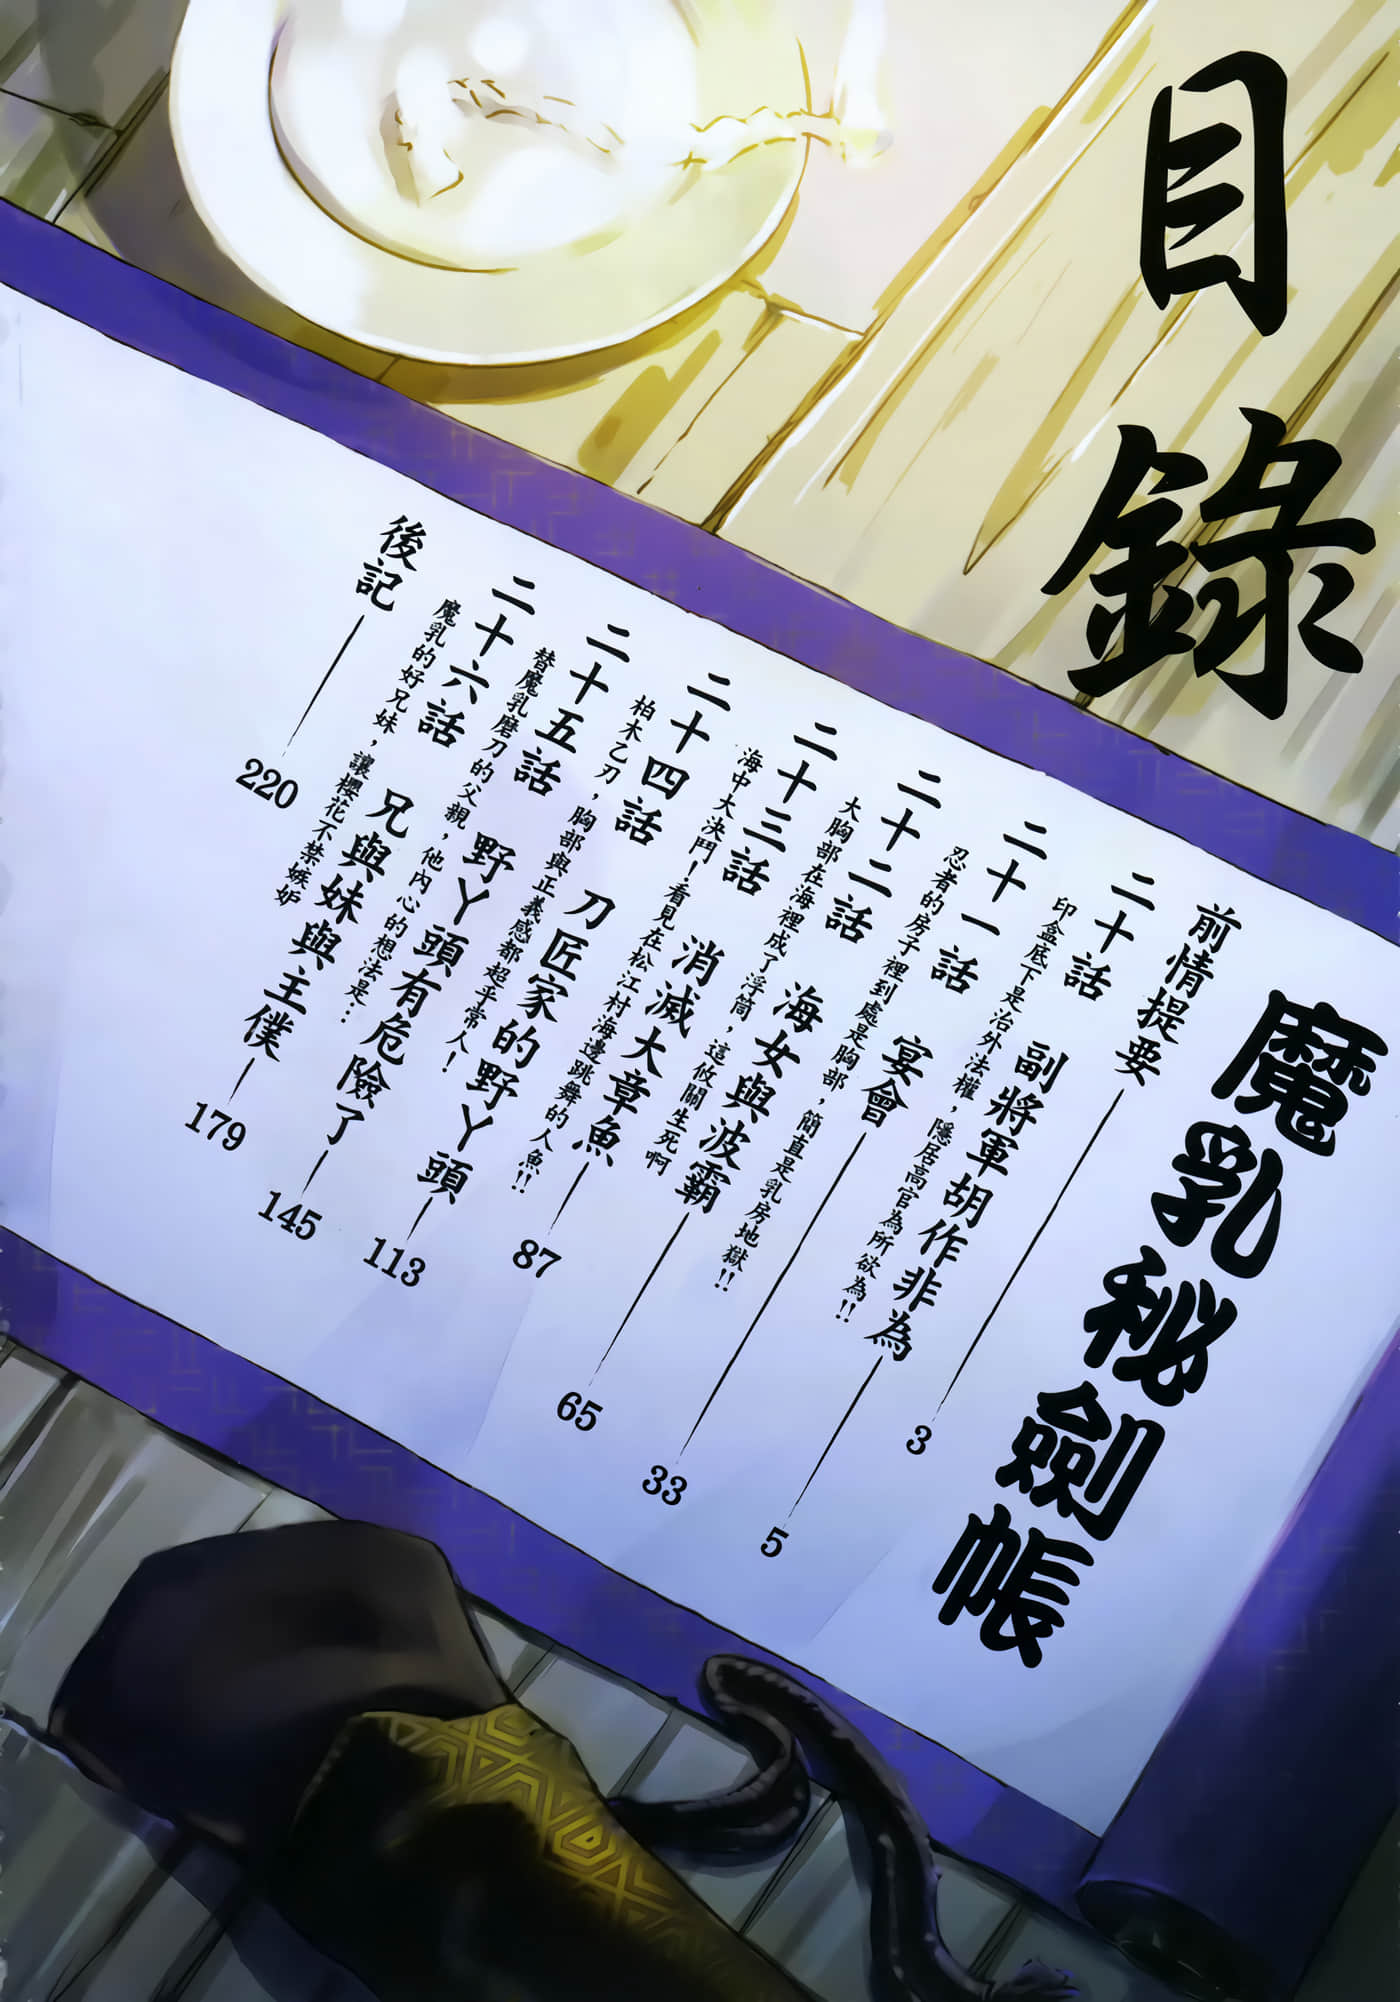 目錄
魔乳秘劍帳
前情提要
3
二十話 副將軍胡作非為
5
印盒底下是治外法權，隱居高官為所欲為!!
二十一話 宴會
33
忍者的房子裡到處是胸部，簡直是乳房地獄!!
二十二話 海女與波霸
65
大胸部在海裡成了浮筒，這攸關生死啊
二十三話 消滅大章魚
87
海中大決鬥！看見在松江村海邊跳舞的人魚!!
二十四話 刀匠家的野丫頭
113
柏木乙刃，胸部與正義感都超乎常人！
二十五話 野丫頭有危險了
145
替魔乳磨刀的父親，他內心的想法是…
二十六話 兄與妹與主僕
179
魔乳的好兄妹，讓櫻花不禁嫉妒
後記
220